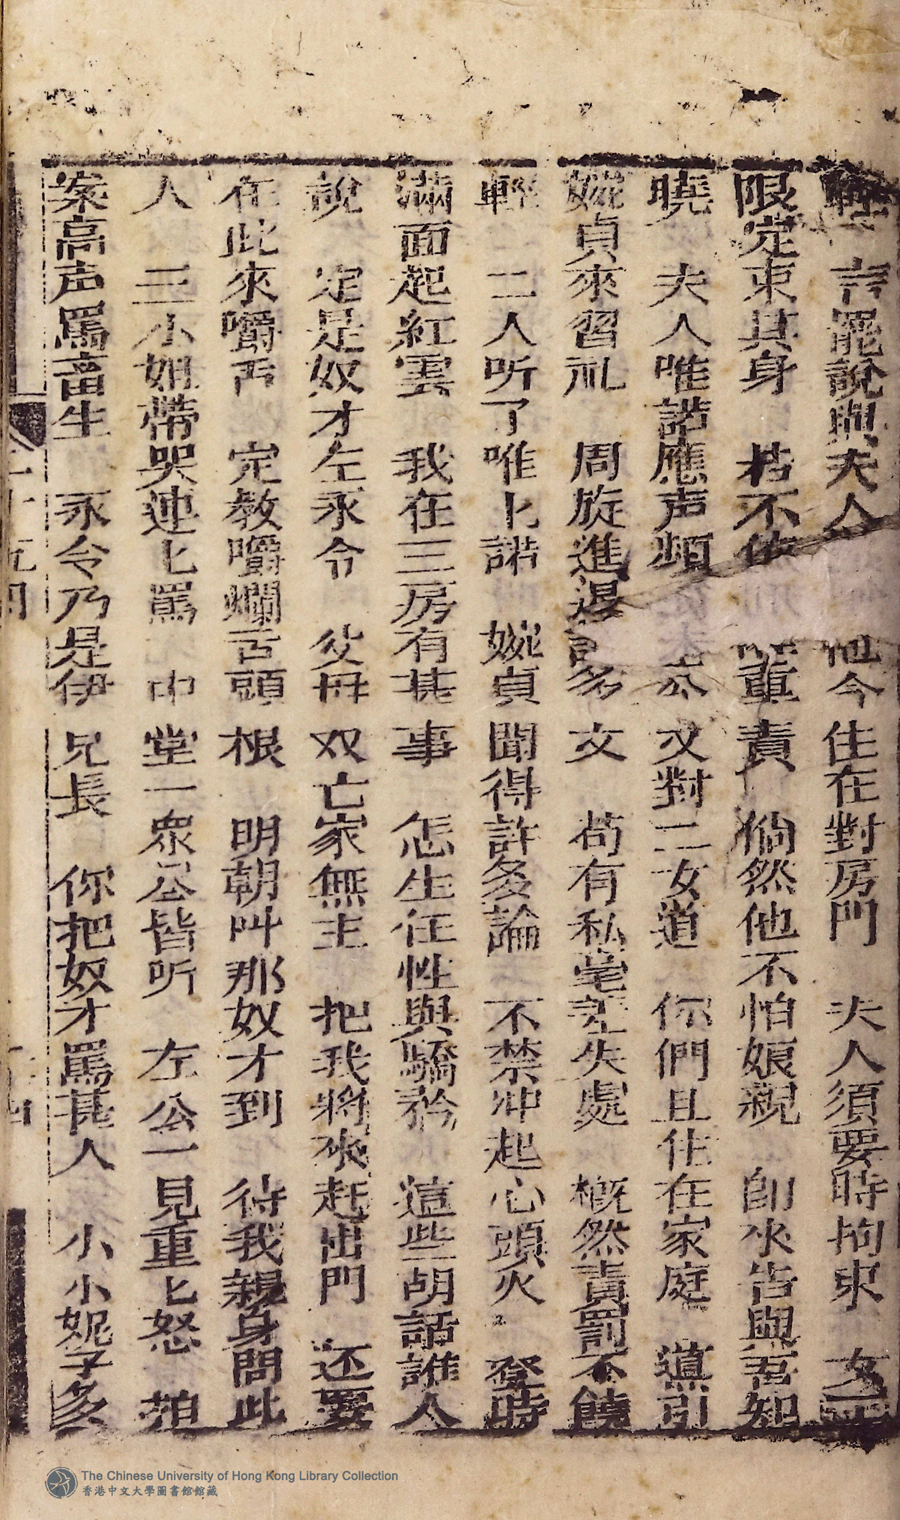 言罷說與夫人 他今住在對房門 夫人須要時拘束 女工
限定束其身 若不依 重責 倘然他不怕娘親 即來告與吾知
曉 夫人唯諾應声頻 公又對二女道 你們且住在家庭 遵引
婉貞來習礼 周旋進退 多文 苟有私毫差失處 概然責罰不饒
輕 二人听了唯匕諾 婉貞聞得許多論 不禁冲起心頭火 登時
滿面起紅雲 我在三房有甚事 怎生任性與驕矜 這些胡話誰人
說 定是奴才左永令 父母双亡家無主 把我將來赶出門 还要
在此來嚼舌 定教嚼爛舌頭根 明朝叫那奴才到 待我親身問此
人 三小姐帶哭連匕罵 中堂一衆公皆听 左公一見重匕怒 拍
案高声罵畜生 永令乃是伊兄長 你把奴才罵甚人 小小妮子多
The Chinese University of Hong Kong Library Collection
香港中文大學圖書館館藏